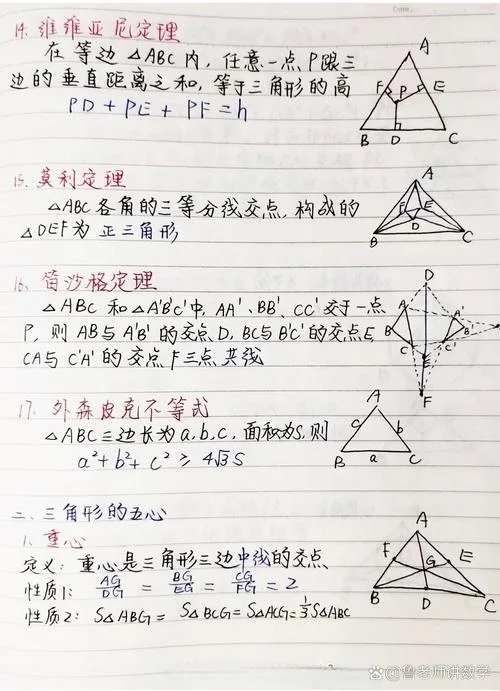 14. 维维亚尼定理
在等边△ABC内，任意一点P跟三
边的垂直距离之和，等于三角形的高
PD + PE + PF = h
A
F P E
B D C
15. 莫利定理
△ABC各角的三等分线交点，构成的
△DEF为 正三角形
A
F E
D
B C
16. 笛沙格定理
△ABC 和△A'B'C'中, AA'、BB'、CC'交于一点
P，则 AB与A'B'的交点D, BC与B'C'的交点E,
CA与C'A'的交点F三点共线
D
A A'
B B'
C C'
E
F
17. 外森皮克不等式
△ABC三边长为a,b,c，面积为S,则
a²+b²+c² ≥ 4√3 S
A
c b
B a C
二、三角形的五心
1. 重心
定义：重心是三角形三边中线的交点
性质1： AG/DG = BG/EG = CG/FG = 2
性质2：S△ABG = S△BCG = S△ACG = 1/3 S△ABC
A
F G E
B D C
@鲁老师讲数学